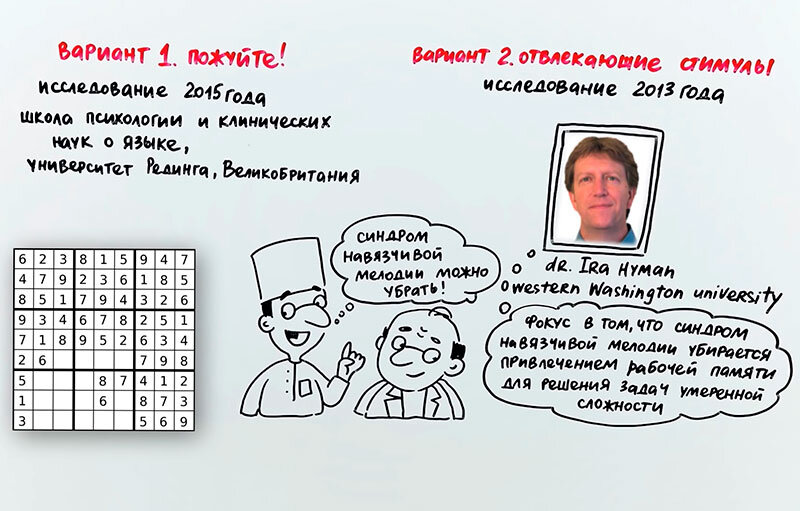 Вариант 1. пожуйте!
исследование 2015 года
школа психологии и клинических
наук о языке,
университет Рединга, Великобритания
Вариант 2. отвлекающие стимулы
исследование 2013 года
dr. Ira Hyman
western Washington university
синдром
навязчивой
мелодии можно
убрать!
Фокус в том, что синдром
навязчивой мелодии убирается
привлечением рабочей памяти
для решения задач умеренной
сложности
6 2 3 8 1 5 9 4 7
4 7 9 2 3 6 1 8 5
8 5 1 7 9 4 3 2 6
9 3 4 6 7 8 2 5 1
7 1 8 9 5 2 6 3 4
2 6 7 9 8
5 8 7 4 1 2
1 6 8 7 3
3 5 6 9